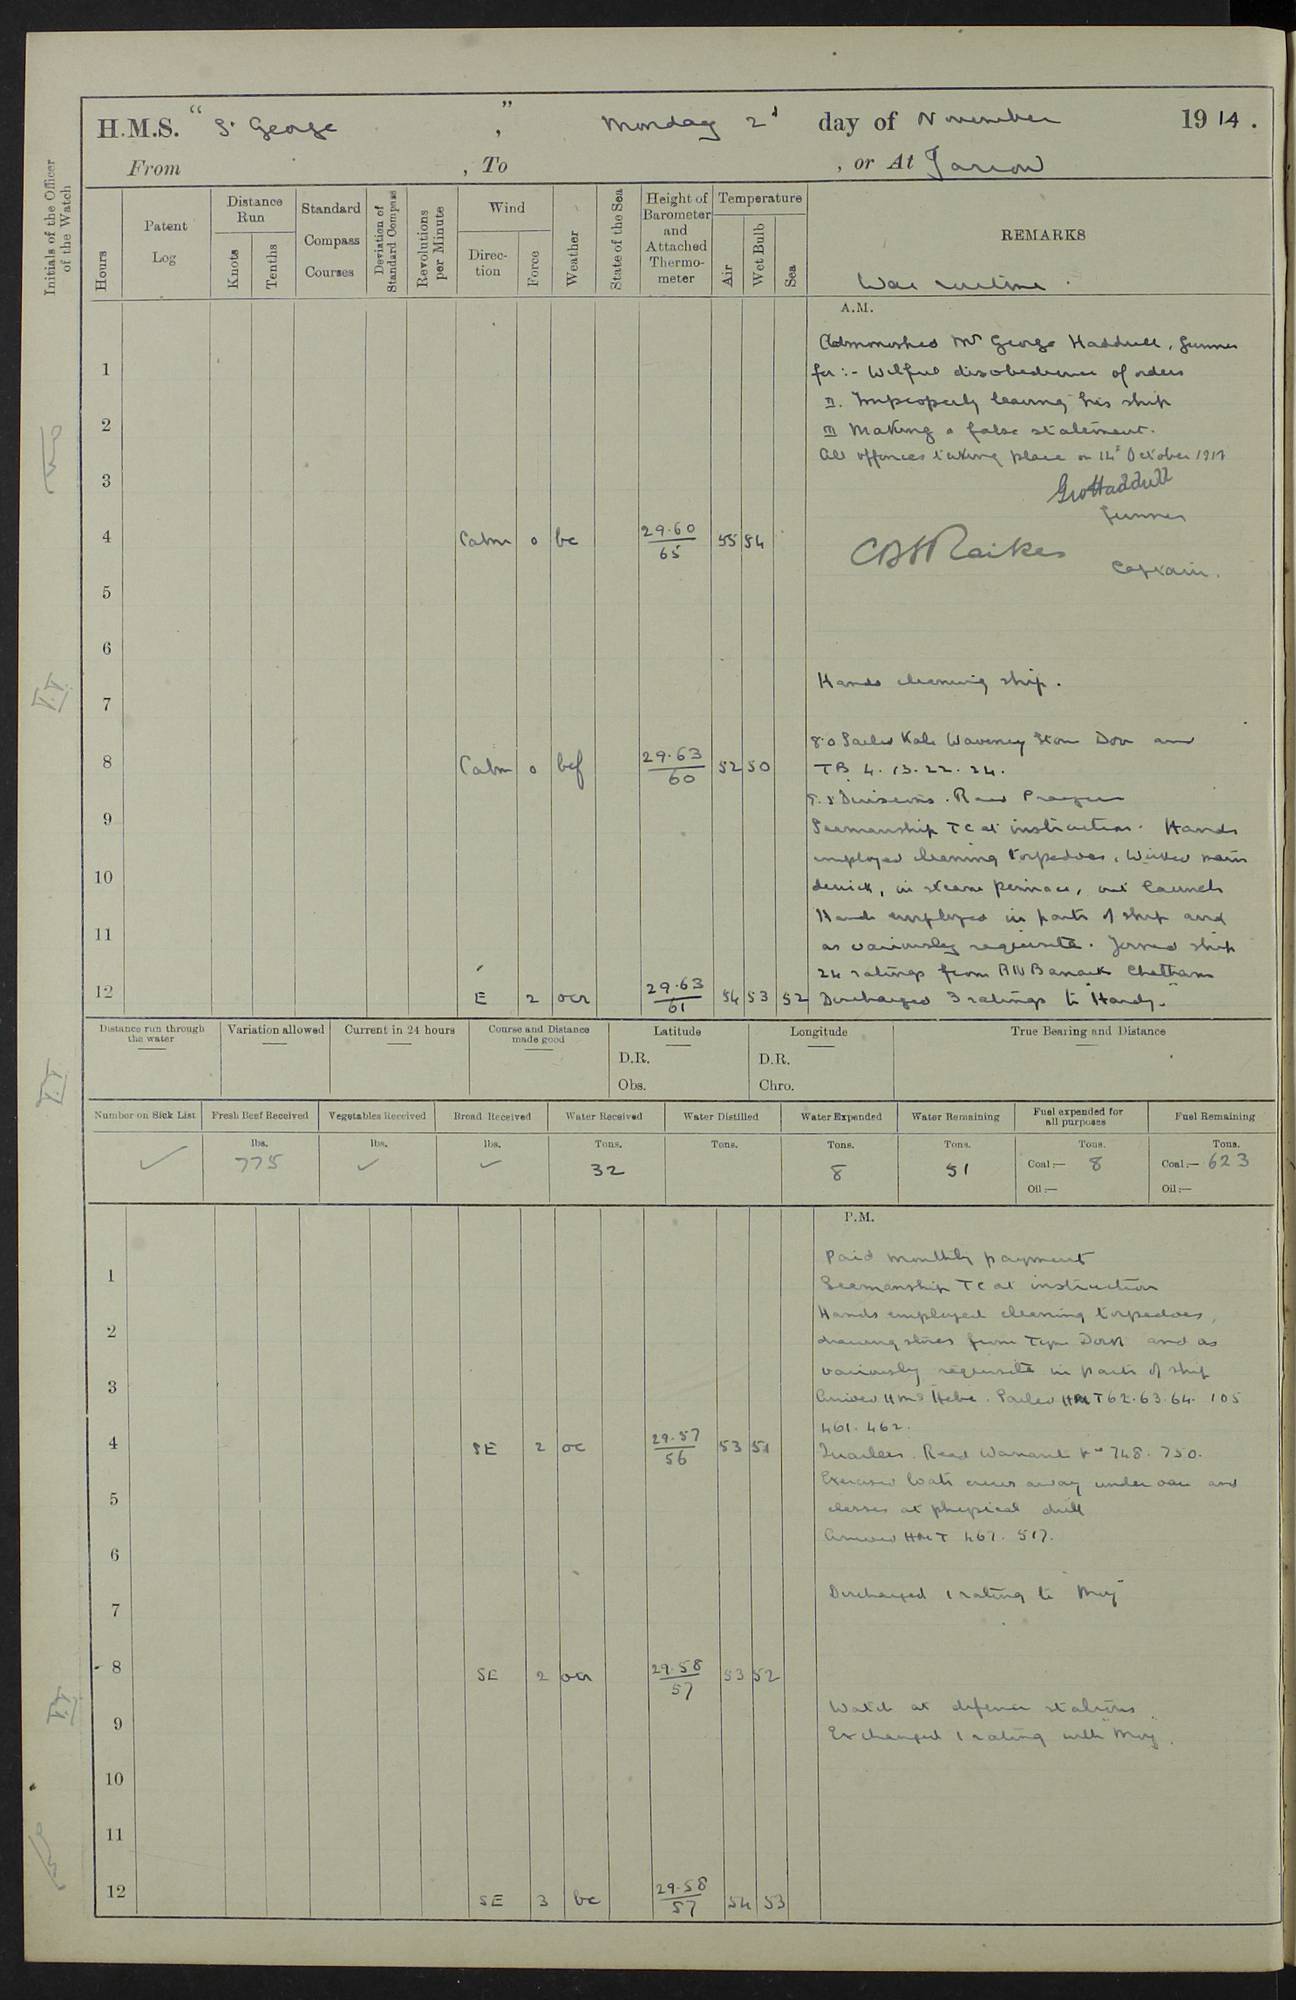 H.M.S. "St George", Monday 2d day of November 1914.
From , To , or At Jarrow
Initials of the Officer of the Watch
Hours
Patent Log
Distance Run
Knots
Tenths
Standard Compass Courses
Deviation of Standard Compass
Revolutions per Minute
Wind
Direction
Force
Weather
State of the Sea
Height of Barometer and Attached Thermometer
Temperature
Air
Wet Bulb
Sea
REMARKS
War routine.
A.M.
Admonished Mr George Haddrell, Gunner
1
for :- Wilful disobedience of orders
II. Improperly leaving his ship
2
III Making a false statement.
All offences taking place on 14th October 1914
3
Geo Haddrell
Gunner
4 Calm 0 bc 29.60 65 55 54
Raikes
Captain.
5
6
Hands cleaning ship.
7
8.0 Sailed Kale Waveney Stour Doon and
8 Calm 0 bcf 29.63 60 52 50
TB 4. 13. 22. 24.
Divisions. Read Prayers
9
Seamanship TC at instruction. Hands
employed cleaning torpedoes. Worked main
10
derrick, in steam pinnace, out launch
Hands employed in parts of ship and
11
as variously requisite. Joined ship
24 ratings from RN Barracks Chatham
12 E 2 ocr 29.63 61 54 53 52
Discharged 3 ratings to "Hardy."
Distance run through the water
Variation allowed
Current in 24 hours
Course and Distance made good
Latitude
D.R.
Obs.
Longitude
D.R.
Chro.
True Bearing and Distance
Number on Sick List
Fresh Beef Received
Vegetables Received
Bread Received
Water Received
Water Distilled
Water Expended
Water Remaining
Fuel expended for all purposes
Fuel Remaining
lbs. lbs. lbs. Tons. Tons. Tons. Tons. Tons. Tons.
775 32 8 51 Coal:— 8 Coal:— 623
Oil:— Oil:—
P.M.
Paid monthly payment
1
Seamanship TC at instruction
Hands employed cleaning torpedoes,
2
drawing stores from Tyne Dock and as
variously requisite in parts of ship
3
Arrived HMS Hebe. Sailed HMT 62. 63. 64. 105
461. 462.
4 SE 2 oc 29.57 56 53 51
Quarters. Read Warrant Nos 748. 750.
Exercised boats crews away under oars and
5
classes at physical drill
Arrived HMT 467. 517.
6
Discharged 1 rating to "Moy"
7
8 SE 2 ocr 29.58 57 53 52
Watch at defence stations.
9
Exchanged 1 rating with "Moy".
10
11
12 SE 3 bc 29.58 57 54 53